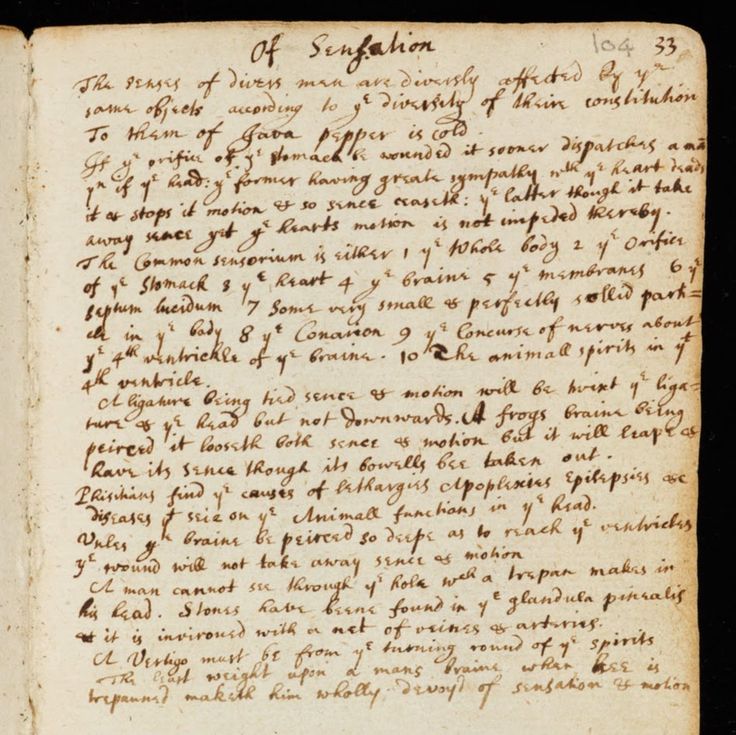 Of Sensation 104 33
The senses of divers men are diversly affected by yᵉ
same objects according to yᵉ diversity of theire constitution
To them of Java pepper is cold.
If yᵉ orifice of yᵉ stomack be wounded it sooner dispatches a mā
yⁿ if yᵉ head: yᵉ former having greate sympathy wᵗʰ yᵉ heart deads
it & stops it motion & so sence ceaseth: yᵉ latter though it take
away sence yet yᵉ hearts motion is not impeded thereby.
The Common sensorium is either 1 yᵉ Whole body 2 yᵉ Orifice
of yᵉ Stomack 3 yᵉ heart 4 yᵉ braine 5 yᵉ membranes 6 yᵉ
septum lucidum 7 Some very small & perfectly solled parti=
cle in yᵉ body 8 yᵉ Conarion 9 yᵉ Concurse of nerves about
yᵉ 4ᵗʰ ventrickle of yᵉ braine. 10 The animall spirits in yᵗ
4ᵗʰ ventricle.
A ligature being tied sence & motion will be twixt yᵉ liga=
ture & yᵉ head but not downwards. A frogs braine being
peirced it looseth both sence & motion but it will leape &
have its sence though its bowells bee taken out.
Phisitians find yᵉ causes of lethargies Apoplexies Epilepsies &c
diseases yᵗ seize on yᵉ Animall functions in yᵉ head.
Unles yᵉ braine be peirced so deepe as to reach yᵉ ventricles
yᵉ wound will not take away sence & motion
A man cannot see through yᵉ hole wᶜʰ a trepan makes in
his head. Stones have beene found in yᵉ glandula pinealis
& it is invironed with a net of veines & arteries.
A Vertigo must be from yᵉ turning round of yᵉ spirits
The least weight upon a mans braine when hee is
trepanned maketh him wholly devoyd of sensation & motion